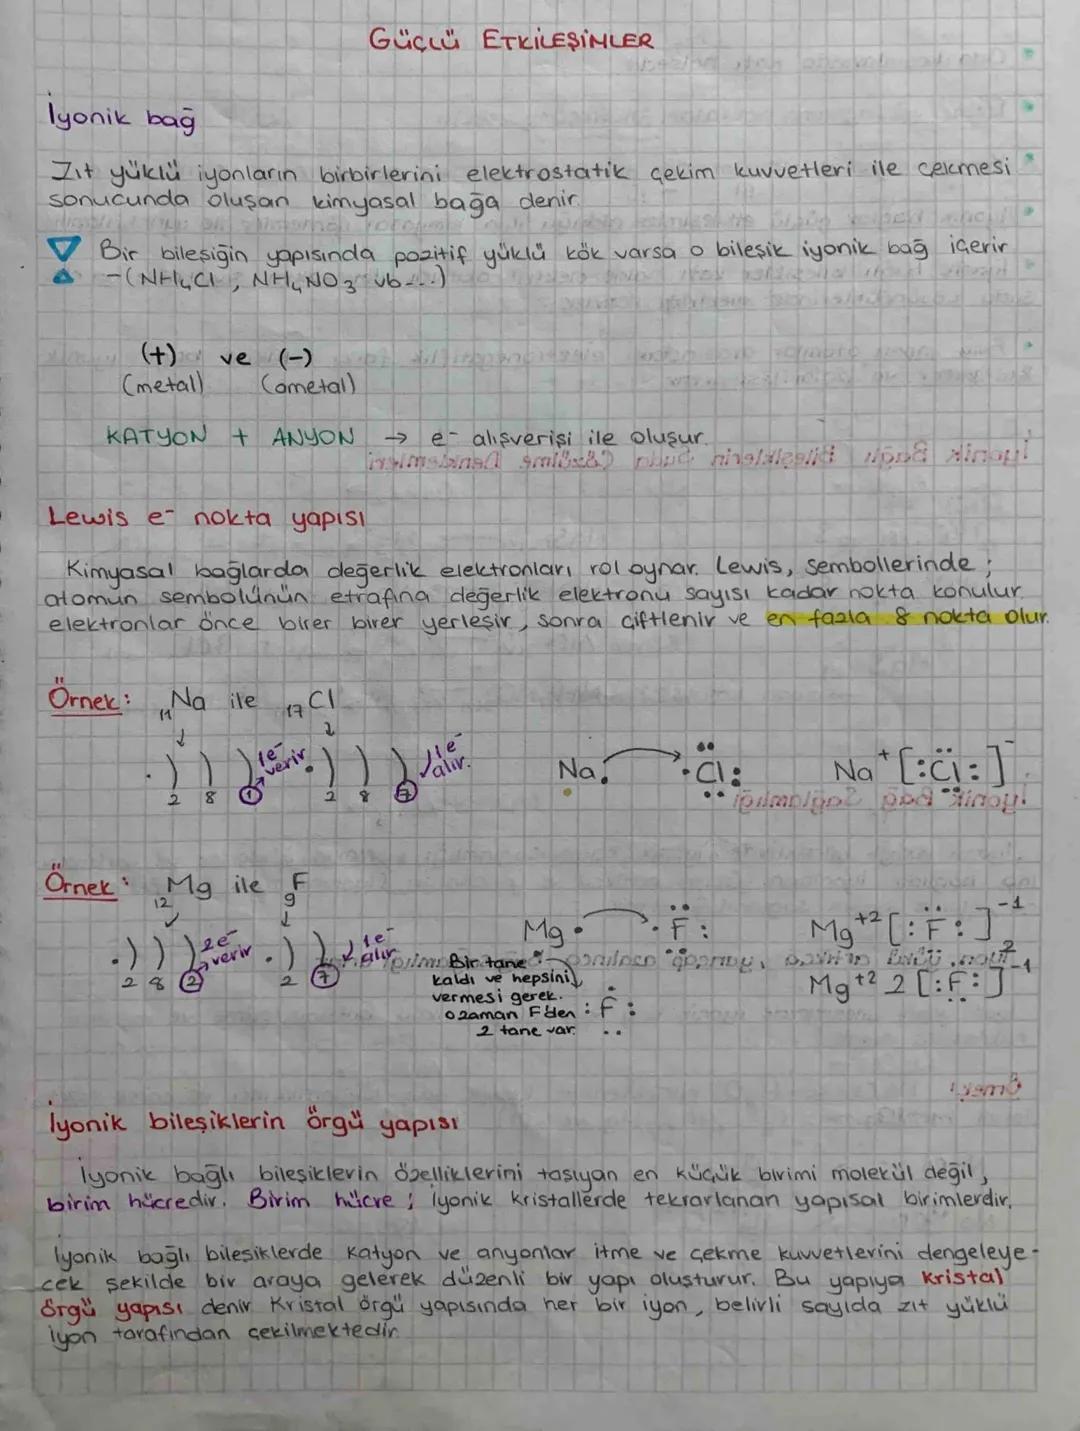 GÜÇLÜ ETKİLEŞİMLER
İyonik bağ
Zıt yüklü iyonların birbirlerini elektrostatik çekim kuvvetleri ile çekmesi
sonucunda oluşan kimyasal bağa denir.
Bir bileşiğin yapısında pozitif yüklü kök varsa o bileşik iyonik bağ içerir
-(NH₄Cl, NH₄NO₃ vb...)
(+) ve (-)
(metal) (ametal)
KATYON + ANYON → e⁻ alışverişi ile oluşur.
Lewis e⁻ nokta yapısı
Kimyasal bağlarda değerlik elektronları rol oynar. Lewis, sembollerinde ;
atomun sembolünün etrafına değerlik elektronu sayısı kadar nokta konulur.
elektronlar önce birer birer yerleşir, sonra çiftlenir ve en fazla 8 nokta olur.
Örnek: ₁₁Na ile ₁₇Cl
1e⁻ verir. 1e⁻ alır.
2 8 1 2 8 7
Na Cl Na⁺[:Cl:]⁻
Örnek: ₁₂Mg ile ₉F
2e⁻ verir 1e⁻ alır
2 8 2 2 7
Mg F: Mg⁺²[:F:]⁻¹
Bir tane
kaldı ve hepsini
vermesi gerek.
o zaman F'den :F:
2 tane var.
Mg⁺² 2[:F:]⁻¹
İyonik bileşiklerin örgü yapısı
İyonik bağlı bileşiklerin özelliklerini taşıyan en küçük birimi molekül değil,
birim hücredir. Birim hücre ; iyonik kristallerde tekrarlanan yapısal birimlerdir.
İyonik bağlı bileşiklerde katyon ve anyonlar itme ve çekme kuvvetlerini dengeleye-
cek şekilde bir araya gelerek düzenli bir yapı oluşturur. Bu yapıya kristal
örgü yapısı denir. Kristal örgü yapısında her bir iyon, belirli sayıda zıt yüklü
iyon tarafından çekilmektedir.